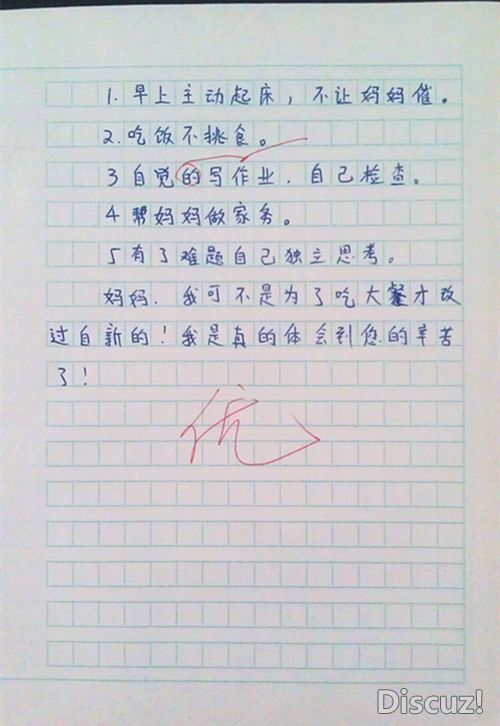 1.早上主动起床，不让妈妈催。
2.吃饭不挑食。
3自觉的写作业．自己检查。
4帮妈妈做家务。
5有了难题自己独立思考。
妈妈．我可不是为了吃大餐才改
过自新的！我是真的体会到您的辛苦
了！
优
Discuz!